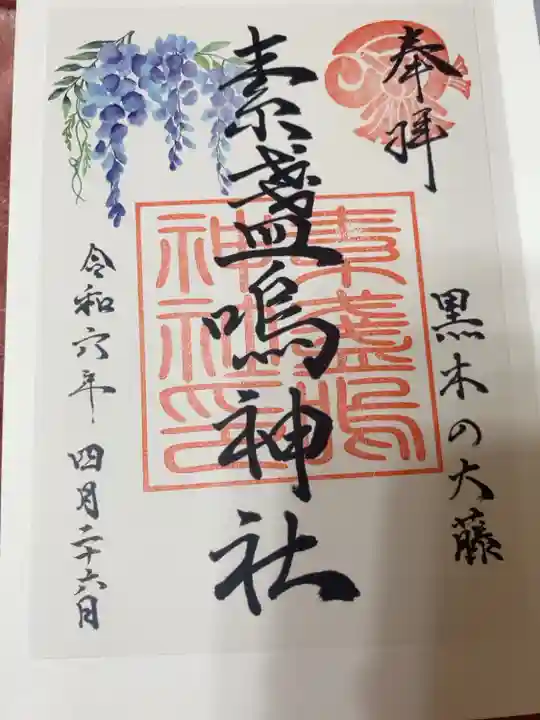 奉拝
黒木の大藤
素盞嗚神社
素盞嗚
神社印
令和六年 四月二十六日